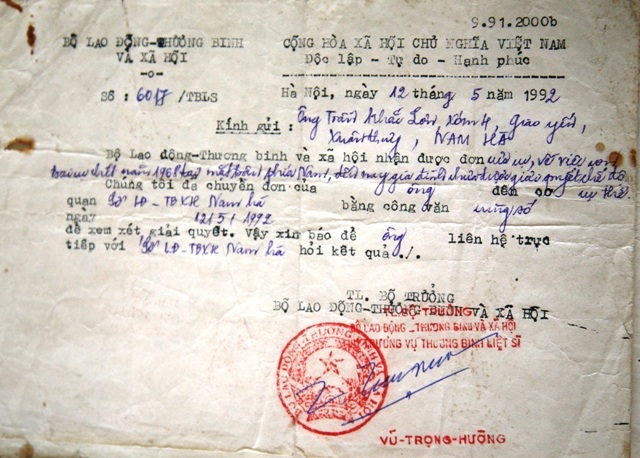 9.91.2000b
BỘ LAO ĐỘNG-THƯƠNG BINH CỘNG HÒA XÃ HỘI CHỦ NGHĨA VIỆT NAM
VÀ XÃ HỘI Độc lập - Tự do - Hạnh phúc
-o-
Số : 6017/TBLS Hà Nội, ngày 12 tháng 5 năm 1992
Kính gửi : Ông Trần Khắc xóm 4, Giao yến,
Xuân thủy, NAM HÀ
Bộ Lao động-Thương binh và xã hội nhận được đơn của cụ, về việc con
năm 1968 tại mặt trận phía Nam, đến nay gia đình chưa được giải quyết chế độ
Chúng tôi đã chuyển đơn của ông đến cơ cụ thể
quan Sở LĐ-TBXH Nam hà bằng công văn cùng số
ngày 12/5/1992
để xem xét giải quyết. Vậy xin báo để ông liên hệ trực
tiếp với Sở LĐ-TBXH Nam hà hỏi kết quả ./.
TL. BỘ TRƯỞNG
BỘ LAO ĐỘNG-THƯƠNG BINH VÀ XÃ HỘI
BỘ LAO ĐỘNG - THƯƠNG BINH VÀ XÃ HỘI
TRƯỞNG VỤ THƯƠNG BINH LIỆT SĨ
VŨ-TRỌNG-HƯỜNG